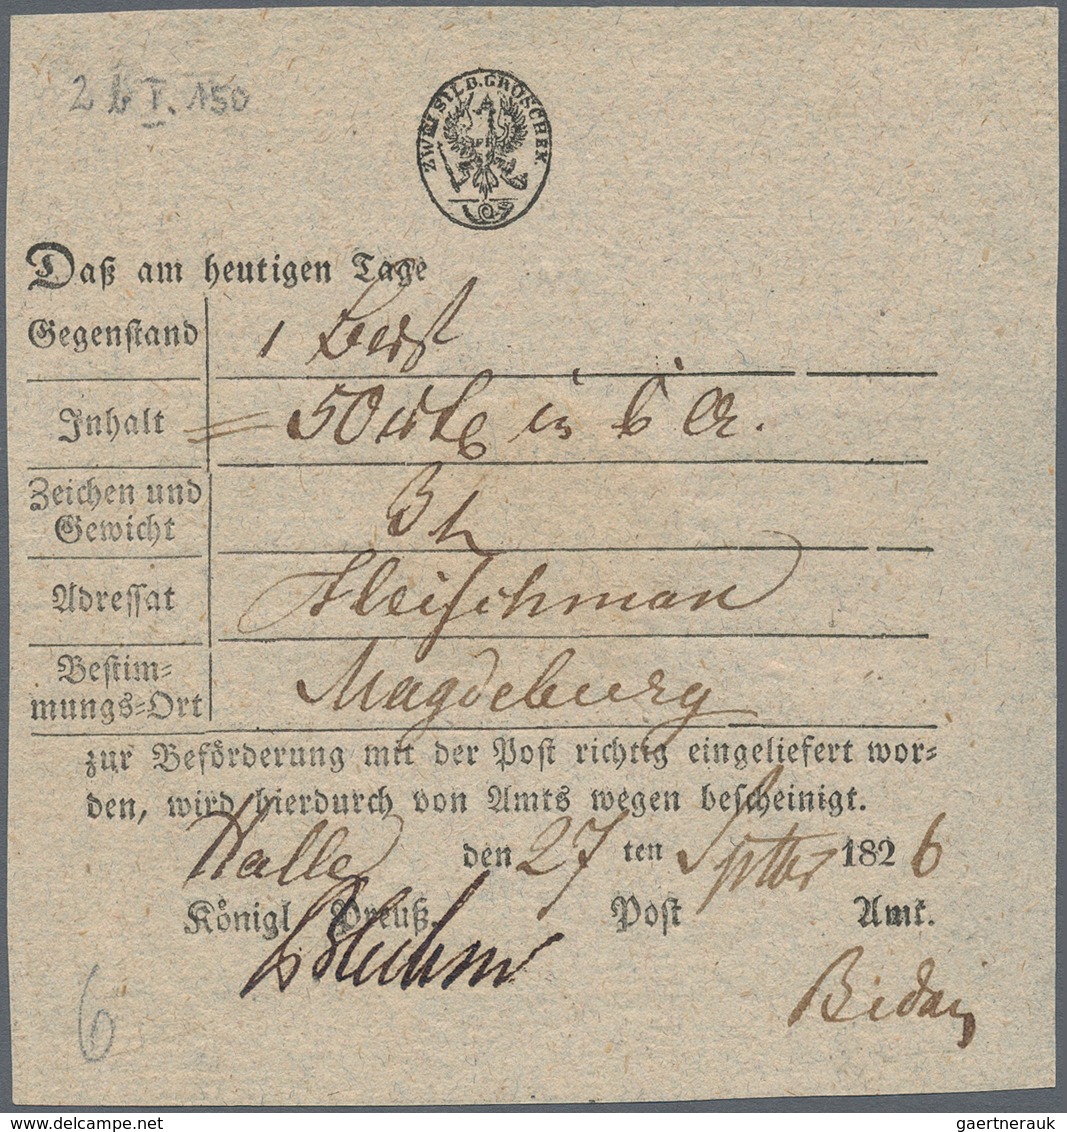 2 b I. 150
ZWEI SILB. GROSCHEN
Daß am heutigen Tage
Gegenstand 1
Inhalt = 50 in
Zeichen und
Gewicht
Adressat Fleischman
Bestim=
mungs=Ort Magdeburg
zur Beförderung mit der Post richtig eingeliefert wor=
den, wird hierdurch von Amts wegen bescheinigt.
Halle den 27 ten Sptbr 1826
Königl Preuß. Post Amt.
6
gaertnerauk